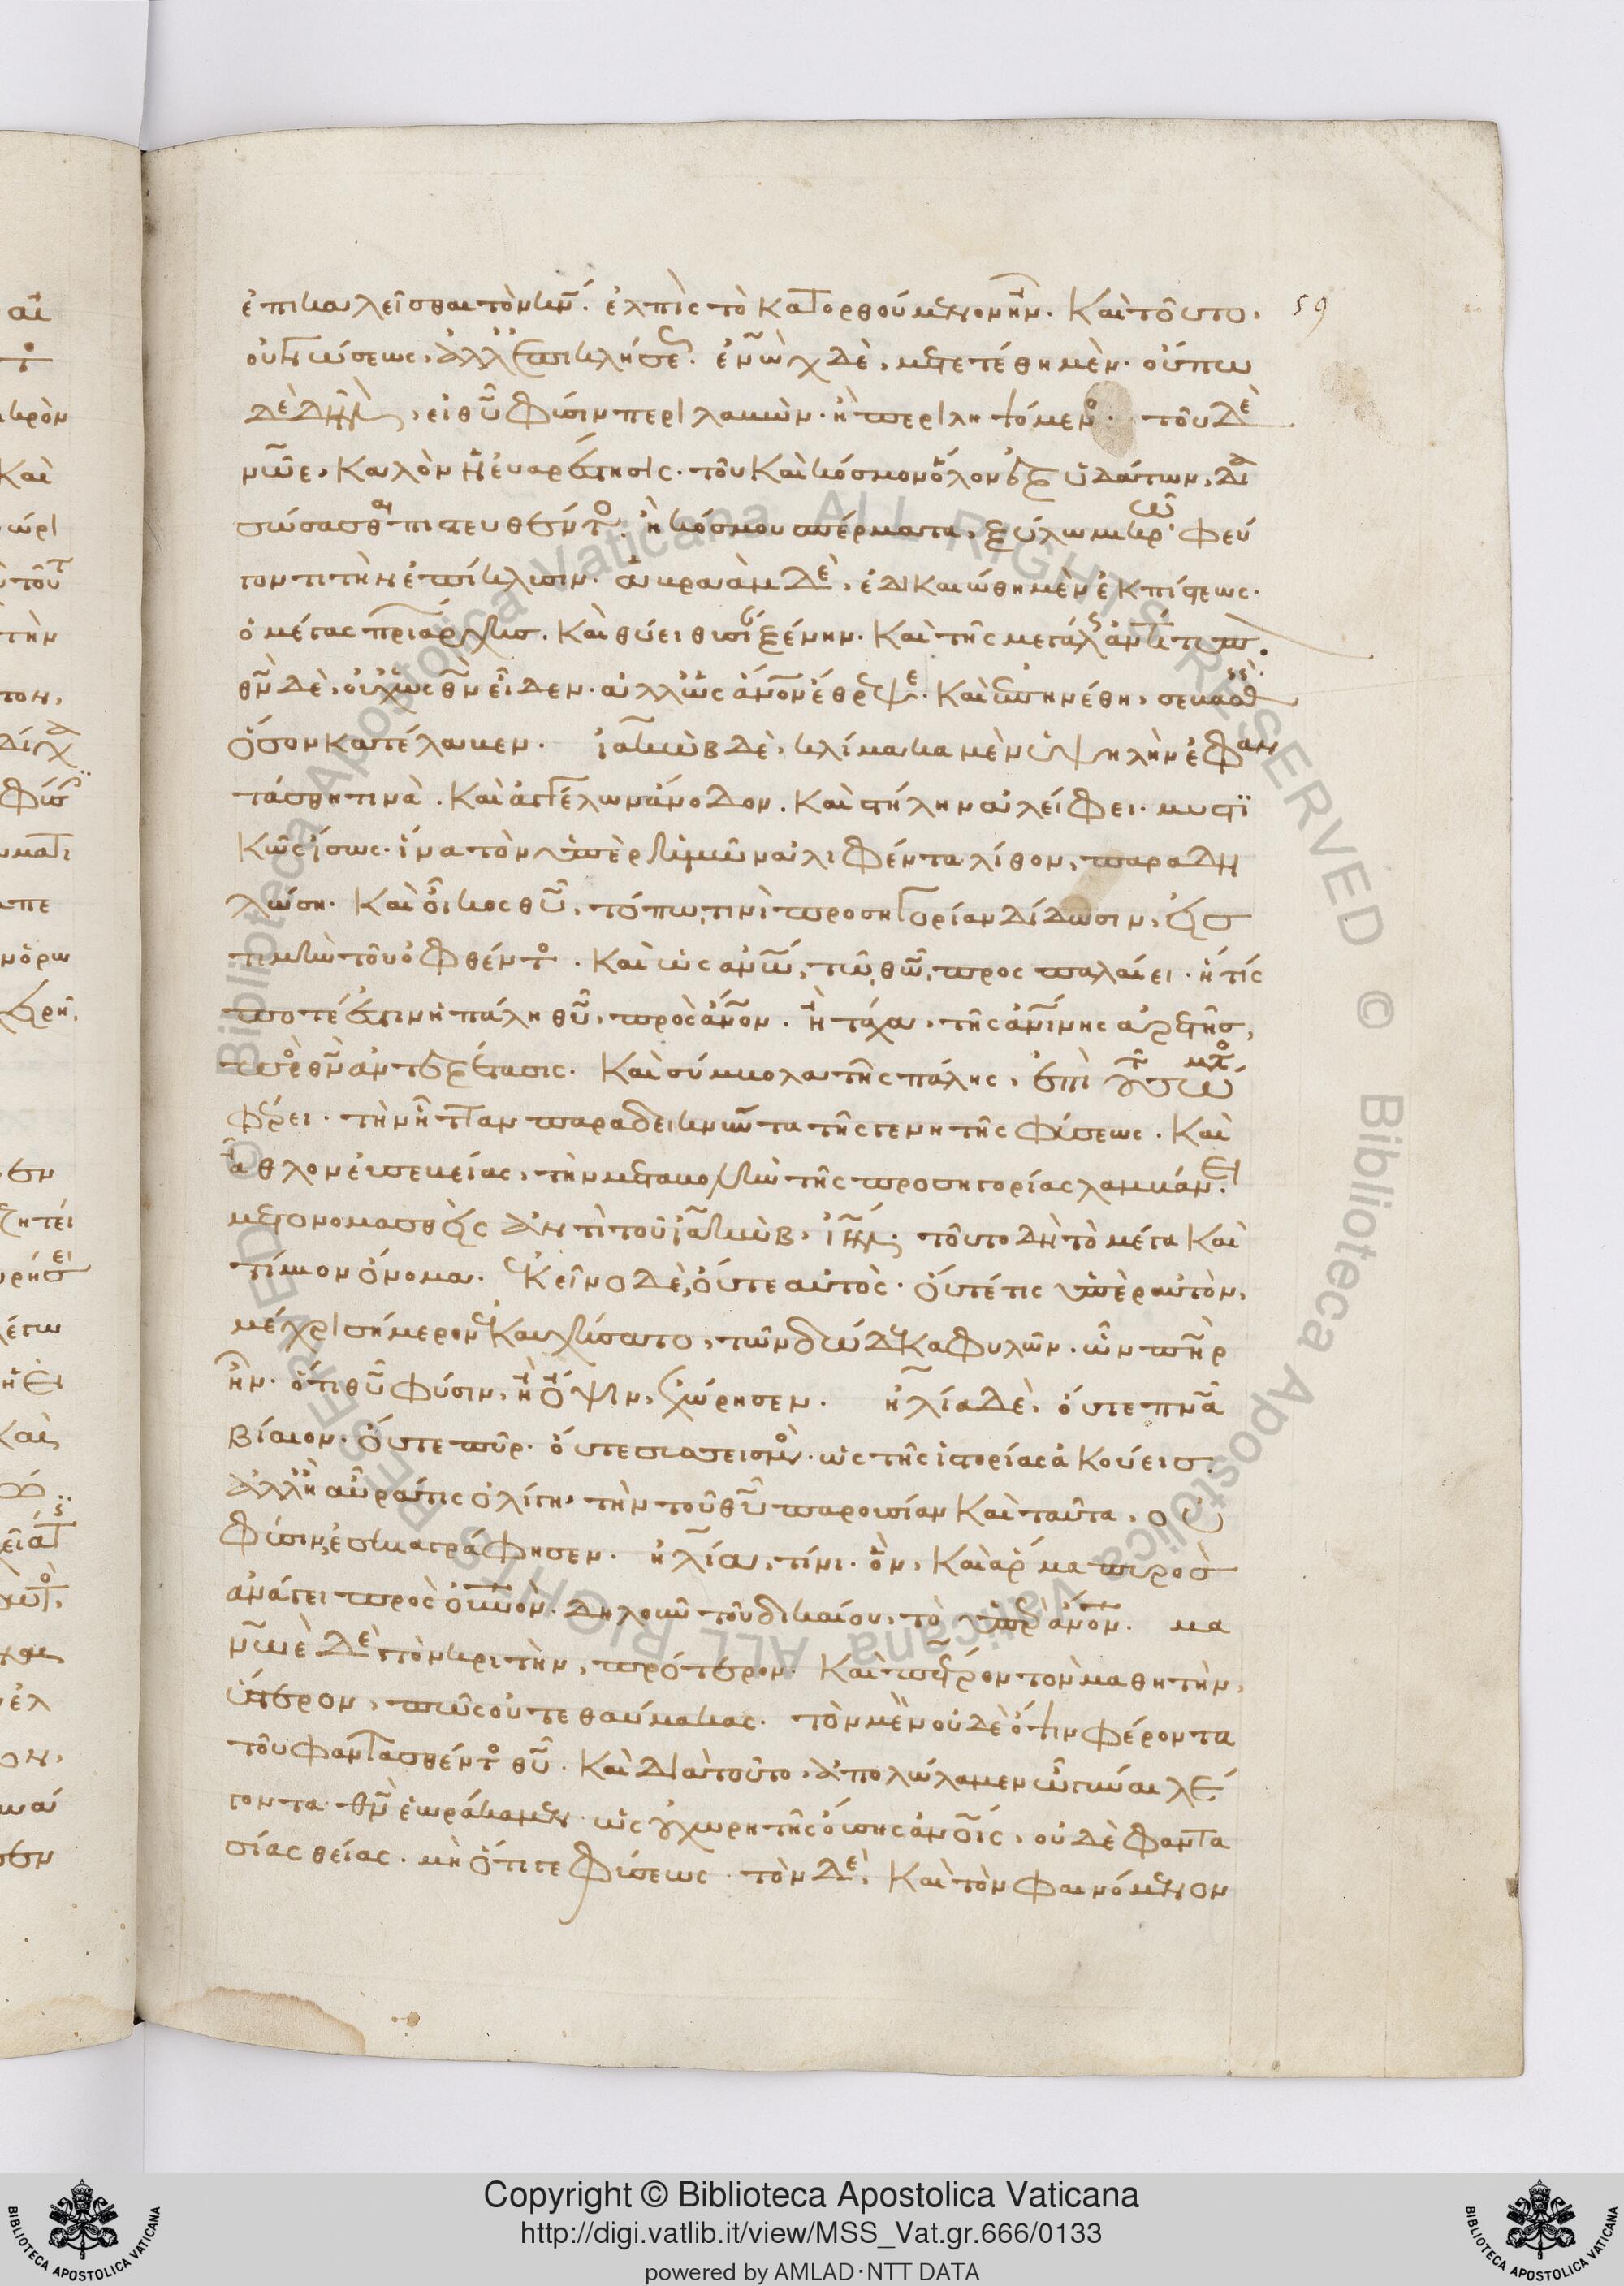 ἐπικαλεῖσθαι τὸν κν̄. ἐλπὶς τὸ κατορθούμενον ἦν. καὶ τοῦτο,
οὐ γνώσεως, ἀλλ' ἐπικλήσεως. ἐνὼχ δὲ, μετετέθη μὲν. οὔπω
δὲ δῆλον, εἰ θῡ φύσιν περιλαβὼν. ἢ περιληψόμενος. τοῦ δὲ
νῶε, καλὸν ἡ εὐαρέστησις. τοῦ καὶ κόσμον ὅλον ἐξ ὑδάτων, δια
σώσασθαι πιστευθέντος. ἢ κόσμου σπέρματα, ξύλω μικρῶ φεύ
γοντι τὴν ἐπίκλυσιν. ἀβραὰμ δὲ, ἐδικαιώθη μὲν ἐκ πίστεως.
ὁ μέγας πριάρχης. καὶ θύει θυσίαν ξένην. καὶ τῆς μεγάλης ἀντίτυπον.
θν̄ δὲ, οὐχ ὡς θν̄ εἶδεν. ἀλλ' ὡς ἄνον ἔθρεψε. καὶ ἐπηνέθη, σεβασθεὶς
ὅσον κατέλαβεν. ἰακὼβ δὲ, κλίμακα μὲν ὑψηλὴν ἐφαν
τάσθη τινὰ. καὶ ἀγγέλων ἄνοδον. καὶ στήλην ἀλείφει. μυστϊ
κῶς ἴσως. ἵνα τὸν ὑπὲρ ἡμῶν ἀλιφέντα λίθον, παραδη
λώση. καὶ οἶκος θῡ, τόπω τινὶ προσηγορίαν δίδωσιν, εἰς
τιμὴν τοῦ ὀφθέντος. καὶ ὡς ἀνω̄, τῶ θω̄, προσπαλαίει. ἥτίς
ποτέ ἐστιν ἡ πάλη θῡ, πρὸς ἄνον. ἢ τάχα, τῆς ἀνίνης ἀρετῆς,
πρὸς θν̄ ἀντεξέτασις. καὶ σύμβολα τῆς πάλης, ἐπὶ τοῦ σώματος
φέρει. τὴν ἧτταν παραδεικνῦντα τῆς γενητῆς φύσεως. καὶ
ἆθλον εὐσεβείας, τὴν μεταβολὴν τῆς προσηγορίας λαμβάνει.
μετονομασθεὶς ἀντὶ τοῦ ἰακὼβ, ιη̄λ. τοῦτο δὴ τὸ μέγα καὶ
τίμιον ὄνομα. ἐκεῖνο δὲ, οὔτε αὐτὸς. οὔτέ τις ὑπὲρ αὐτὸν,
μέχρι σήμερον ἐκαυχήσατο, τῶν δώδεκα φυλῶν. ὧν πηρ
ἦν. ὅτι θῡ φύσιν, ἢ ὄψιν, ἐχώρησεν. ἠλία δὲ, οὔτε πνᾱ
βίαιον. οὔτε πῦρ. οὔτε συσσεισμὸς. ὡς τῆς ἱστορίας ἀκούεις.
ἀλλ' ἡ αὔρα τις ὀλίγη, τὴν τοῦ θῡ παρουσίαν καὶ ταῦτα, οὐ
φύσιν, ἐσκιαγράφησεν. ἠλία, τίνι. ὃν, καὶ ἅρμα πυρὸς
ἀνάγει πρὸς οὐνον. δηλοῦν τοῦ δικαίου, τὸ ὑπὲρ ἄνον. μα
νωὲ δὲ τὸν κριτὴν, πρότερον. καὶ πέτρον τὸν μαθητὴν,
ὕστερον, πῶς οὐ τεθαύμακας. τὸν μὲν οὐδὲ ὄψιν φέροντα
τοῦ φαντασθέντος θῡ. καὶ διὰ τοῦτο, ἀπολώλαμεν ὦ γύναι λέ
γοντα. θν̄ ἑωράκαμεν. ὡς οὐ χωρητῆς οὔσης ἀνοις, οὐδὲ φαντα
σίας θείας. μὴ ὅτι γε φύσεως. τὸν δὲ, καὶ τὸν φαινόμενον
59
Copyright © Biblioteca Apostolica Vaticana
http://digi.vatlib.it/view/MSS_Vat.gr.666/0133
powered by AMLAD·NTT DATA